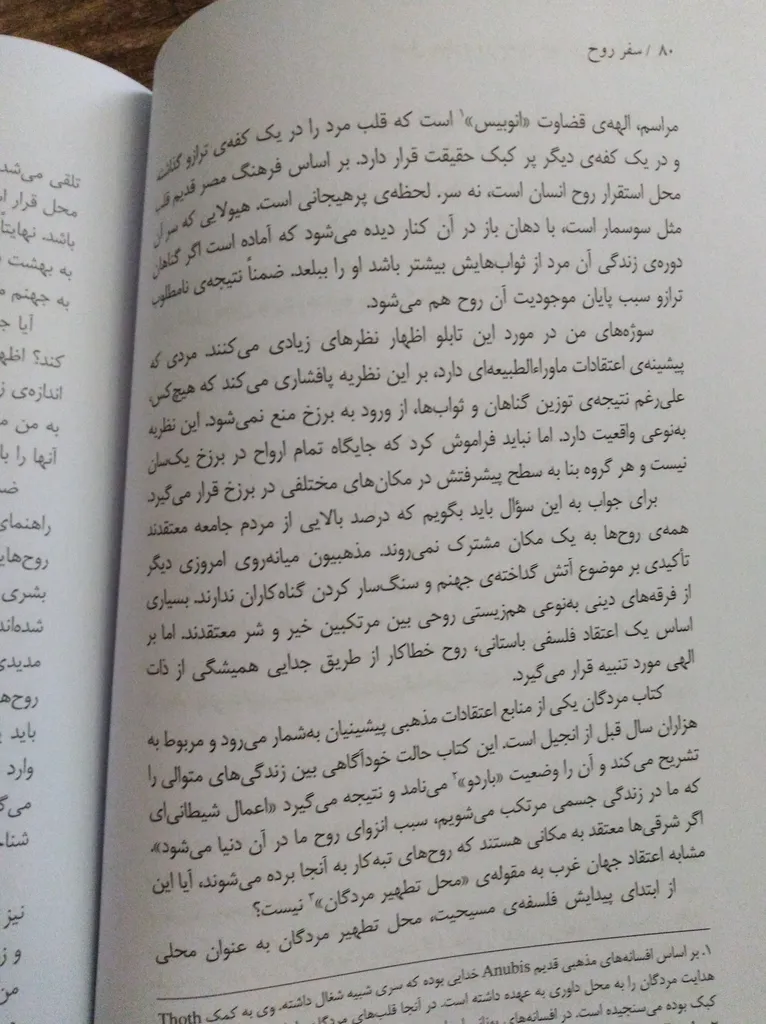 ۸۰ / سفر روح
مراسم، الهه‌ی قضاوت «انوبیس»۱ است که قلب مرد را در یک کفه‌ی ترازو گذاشته
و در یک کفه‌ی دیگر پر کبک حقیقت قرار دارد. بر اساس فرهنگ مصر قدیم قلب
محل استقرار روح انسان است، نه سر. لحظه‌ی پرهیجانی است. هیولایی که سر آن
مثل سوسمار است، با دهان باز در آن کنار دیده می‌شود که آماده است اگر گناهان
دوره‌ی زندگی آن مرد از ثواب‌هایش بیشتر باشد او را ببلعد. ضمناً نتیجه‌ی نامطلوب
ترازو سبب پایان موجودیت آن روح هم می‌شود.
سوژه‌های من در مورد این تابلو اظهار نظرهای زیادی می‌کنند. مردی که
پیشینه‌ی اعتقادات ماوراءالطبیعه‌ای دارد، بر این نظریه پافشاری می‌کند که هیچ‌کس،
علی‌رغم نتیجه‌ی توزین گناهان و ثواب‌ها، از ورود به برزخ منع نمی‌شود. این نظریه
به‌نوعی واقعیت دارد. اما نباید فراموش کرد که جایگاه تمام ارواح در برزخ یک‌سان
نیست و هر گروه بنا به سطح پیشرفتش در مکان‌های مختلفی در برزخ قرار می‌گیرد.
برای جواب به این سؤال باید بگویم که درصد بالایی از مردم جامعه معتقدند
همه‌ی روح‌ها به یک مکان مشترک نمی‌روند. مذهبیون میانه‌روی امروزی دیگر
تأکیدی بر موضوع آتش گداخته‌ی جهنم و سنگ‌سار کردن گناه‌کاران ندارند. بسیاری
از فرقه‌های دینی به‌نوعی هم‌زیستی روحی بین مرتکبین خیر و شر معتقدند. اما بر
اساس یک اعتقاد فلسفی باستانی، روح خطاکار از طریق جدایی همیشگی از ذات
الهی مورد تنبیه قرار می‌گیرد.
کتاب مردگان یکی از منابع اعتقادات مذهبی پیشینیان به‌شمار می‌رود و مربوط به
هزاران سال قبل از انجیل است. این کتاب حالت خودآگاهی بین زندگی‌های متوالی را
تشریح می‌کند و آن را وضعیت «باردو»۲ می‌نامد و نتیجه می‌گیرد «اعمال شیطانی‌ای
که ما در زندگی جسمی مرتکب می‌شویم، سبب انزوای روح ما در آن دنیا می‌شود».
اگر شرقی‌ها معتقد به مکانی هستند که روح‌های تبه‌کار به آنجا برده می‌شوند، آیا این
مشابه اعتقاد جهان غرب به مقوله‌ی «محل تطهیر مردگان»۳ نیست؟
از ابتدای پیدایش فلسفه‌ی مسیحیت، محل تطهیر مردگان به عنوان محلی
۱. بر اساس افسانه‌های مذهبی قدیم Anubis خدایی بوده که سری شبیه شغال داشته. وی به کمک Thoth
هدایت مردگان را به محل داوری به عهده داشته است. در آنجا قلب‌های مردگان
کبک بوده می‌سنجیده است. در افسانه‌های یونانی
تلقی می‌شد
محل قرار
باشد. نهایتاً
به بهشت
به جهنم
آیا
کند؟ اظه
اندازه‌ی
به من
آنها را
راهنمای
روح‌های
بشری
شده‌اند
مدیدی
باید
وارد
نیز
من